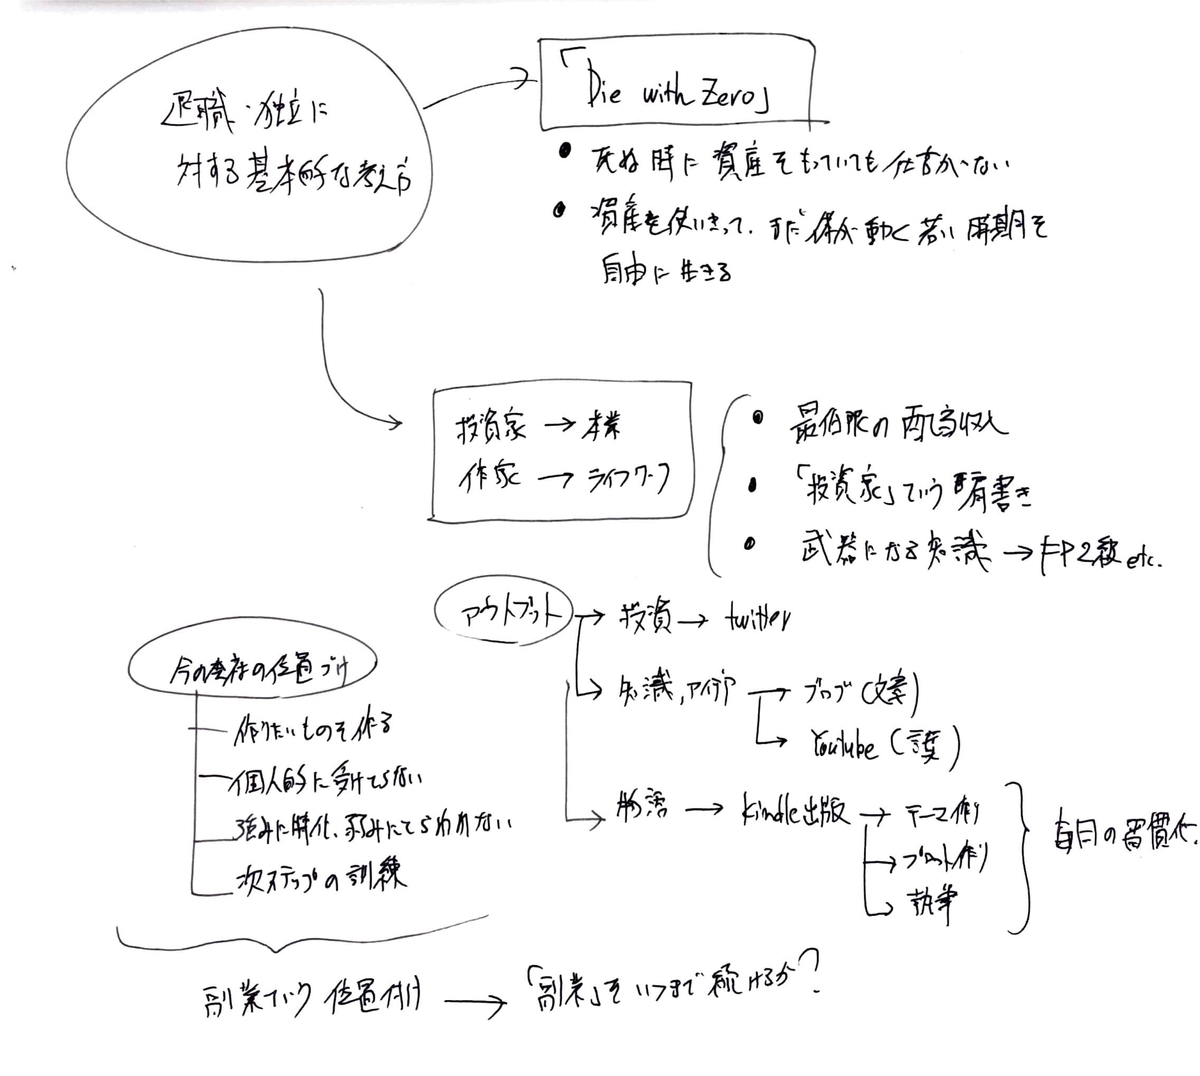 退職・独立に
対する基本的な考え方
「Die with Zero」
● 死ぬ時に資産をもっていても仕方がない
● 資産を使いきって、まだ体が動く若い時期を
自由に生きる
投資家 → 本業
作家 → ライフワーク
● 最低限の配当収入
● 「投資家」ていう肩書き
● 武器になる知識 → FP2級etc.
アウトプット → 投資 → twitter
→ 知識,アイデア → ブログ(文章)
→ Youtube(言葉)
→ 物語 → kindle出版 → テーマ作り
→ プロット作り
→ 執筆
毎日の習慣化
今の会社の位置づけ
作りたいものを作る
個人的に受けてらない
強みに特化、弱みにとらわれない
次ステップの訓練
副業ていう位置付け → 「副業」をいつまで続けるか?